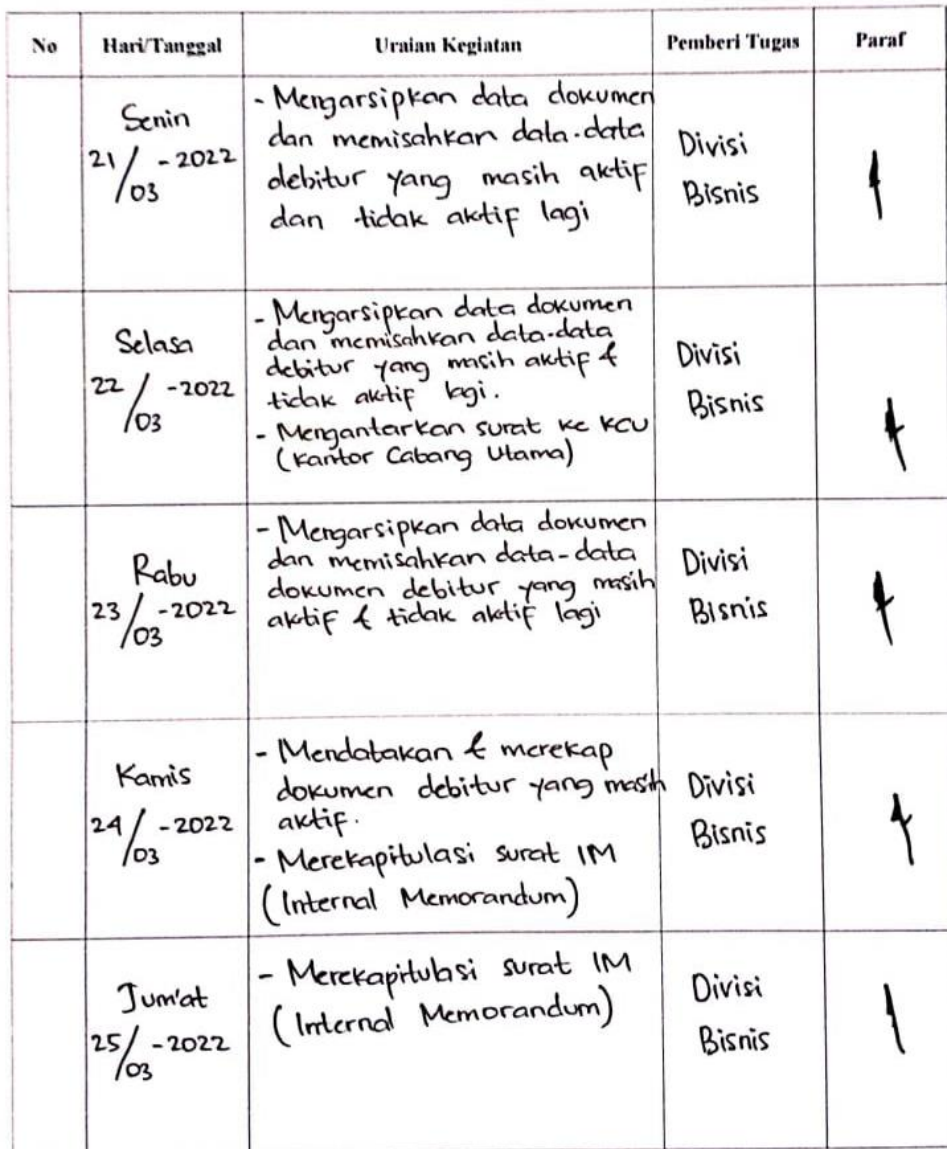 No Hari/Tanggal Uraian Kegiatan Pemberi Tugas Paraf
Senin
21/03-2022
- Mengarsipkan data dokumen
dan memisahkan data-data
debitur yang masih aktif
dan tidak aktif lagi
Divisi
Bisnis
Selasa
22/03-2022
- Mengarsipkan data dokumen
dan memisahkan data-data
debitur yang masih aktif &
tidak aktif lagi.
- Mengantarkan surat ke KCU
(Kantor Cabang Utama)
Divisi
Bisnis
Rabu
23/03-2022
- Mengarsipkan data dokumen
dan memisahkan data-data
dokumen debitur yang masih
aktif & tidak aktif lagi
Divisi
Bisnis
Kamis
24/03-2022
- Mendatakan & merekap
dokumen debitur yang masih
aktif.
- Merekapitulasi surat IM
(Internal Memorandum)
Divisi
Bisnis
Jum'at
25/03-2022
- Merekapitulasi surat IM
(Internal Memorandum)
Divisi
Bisnis